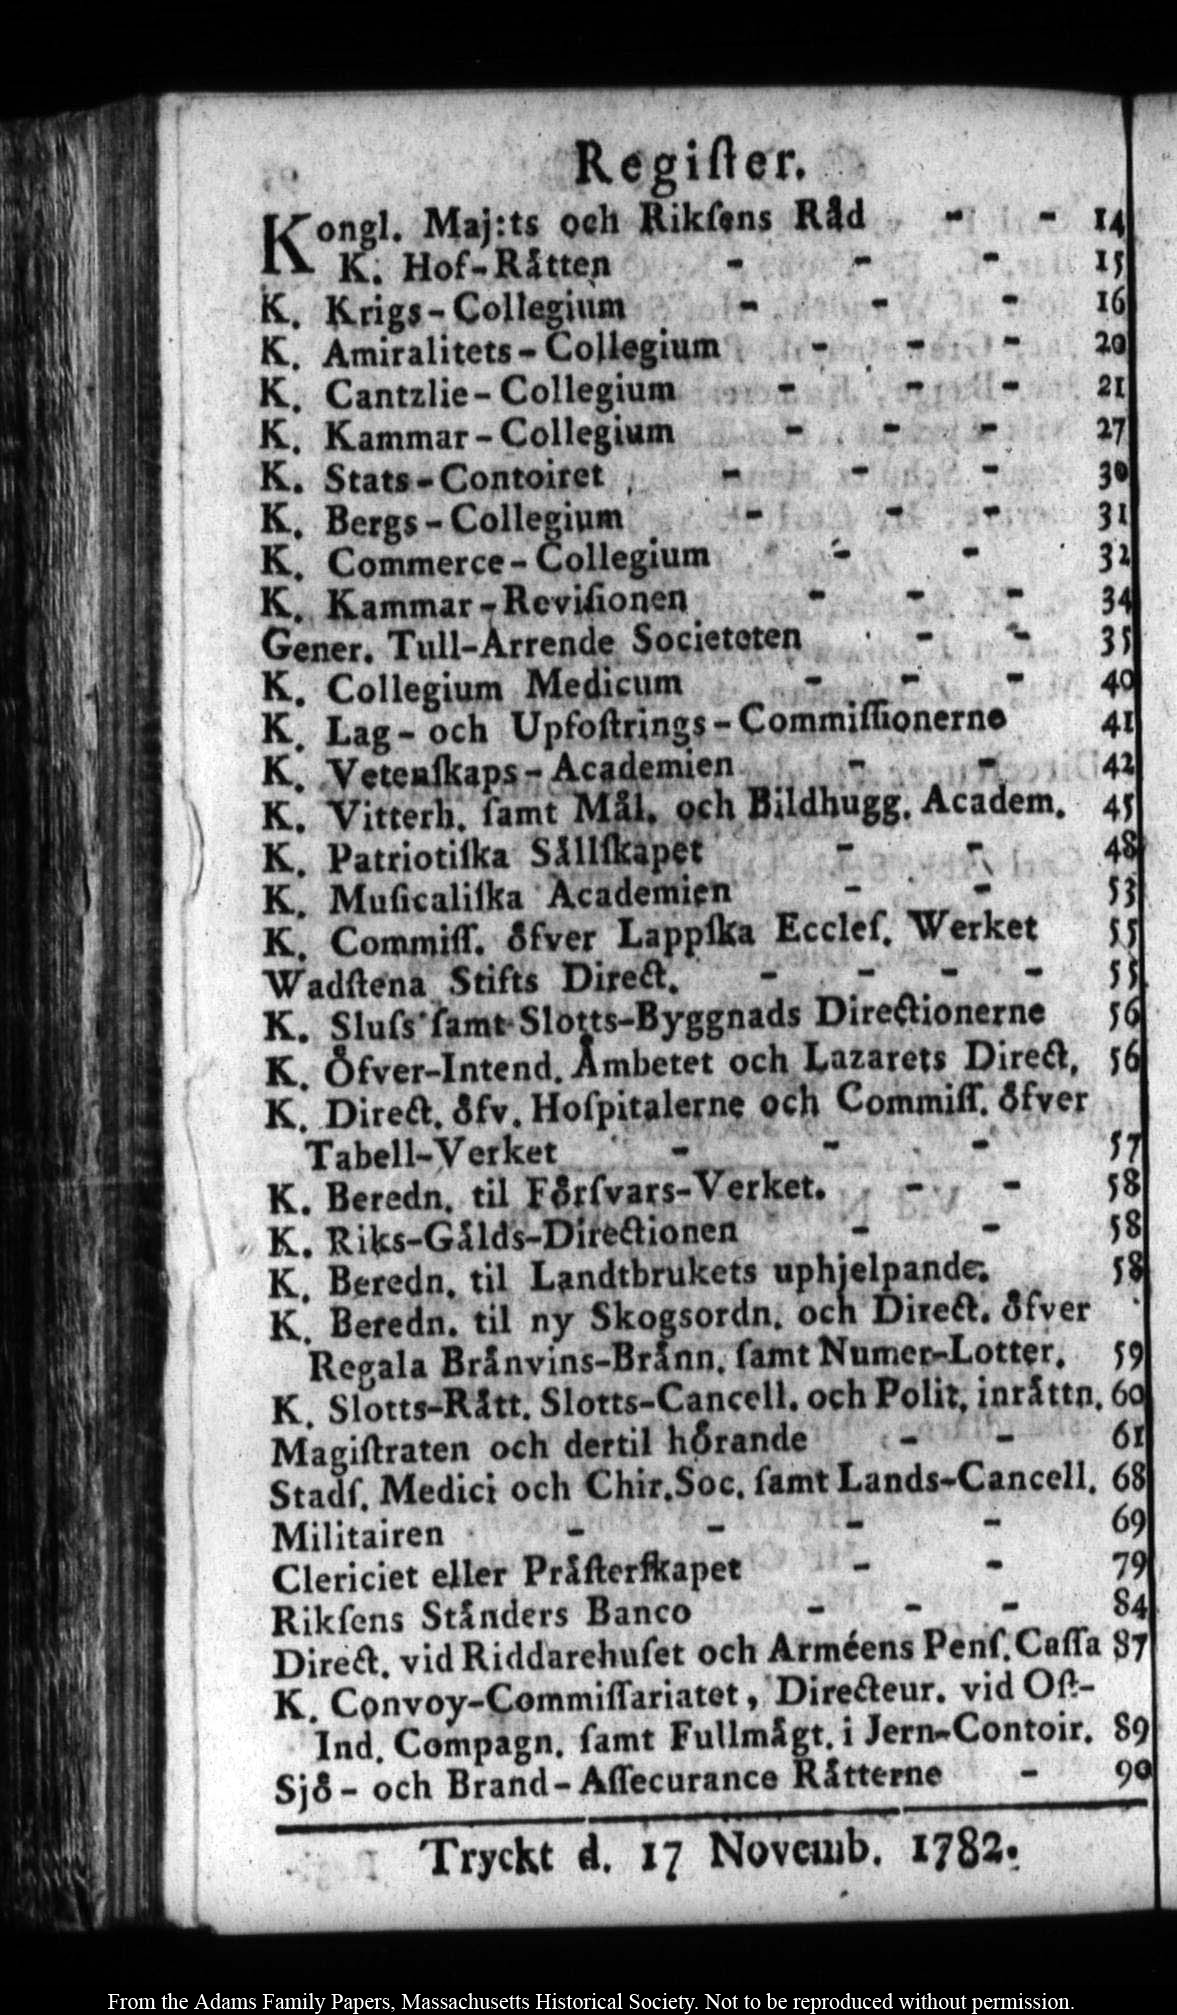 Regiſter.
Kongl. Maj:ts och Rikſens Råd - - 14
K. Hof-Råtten - - - 15
K. Krigs-Collegium - - - 16
K. Amiralitets-Collegium - - - 20
K. Cantzlie-Collegium - - - 21
K. Kammar-Collegium - - - 27
K. Stats-Contoiret - - - 30
K. Bergs-Collegium - - - 31
K. Commerce-Collegium - - 32
K. Kammar-Reviſionen - - - 34
Gener. Tull-Arrende Societeten - - 35
K. Collegium Medicum - - - 40
K. Lag- och Upfoſtrings-Commiſſionerne 41
K. Vetenſkaps-Academien - - 42
K. Vitterh. ſamt Mål. och Bildhugg. Academ. 45
K. Patriotiſka Sållſkapet - - 48
K. Muſicaliſka Academien - - 53
K. Commiſſ. o̊fver Lappſka Eccleſ. Werket 55
Wadſtena Stifts Direct. - - - - 55
K. Sluſs ſamt Slotts-Byggnads Directionerne 56
K. O̊fver-Intend. Åmbetet och Lazarets Direct. 56
K. Direct. o̊fv. Hoſpitalerne och Commiſſ. o̊fver
Tabell-Verket - - - 57
K. Beredn. til Fo̊rſvars-Verket. - - 58
K. Riks-Gålds-Directionen - - 58
K. Beredn. til Landtbrukets uphjelpande. 58
K. Beredn. til ny Skogsordn. och Direct. o̊fver
Regala Brånvins-Brånn. ſamt Numer-Lotter. 59
K. Slotts-Rått. Slotts-Cancell. och Polit. inråttn. 60
Magiſtraten och dertil ho̊rande - - 61
Stadſ. Medici och Chir. Soc. ſamt Lands-Cancell. 68
Militairen - - - - 69
Clericiet eller Pråſterſkapet - - 79
Rikſens Stånders Banco - - - 84
Direct. vid Riddarehuſet och Arméens Penſ. Caſſa 87
K. Convoy-Commiſſariatet, Directeur. vid Oſt-
Ind. Compagn. ſamt Fullmågt. i Jern-Contoir. 89
Sjo̊- och Brand-Aſſecurance Råtterne - 90
Tryckt d. 17 Novemb. 1782.
From the Adams Family Papers, Massachusetts Historical Society. Not to be reproduced without permission.